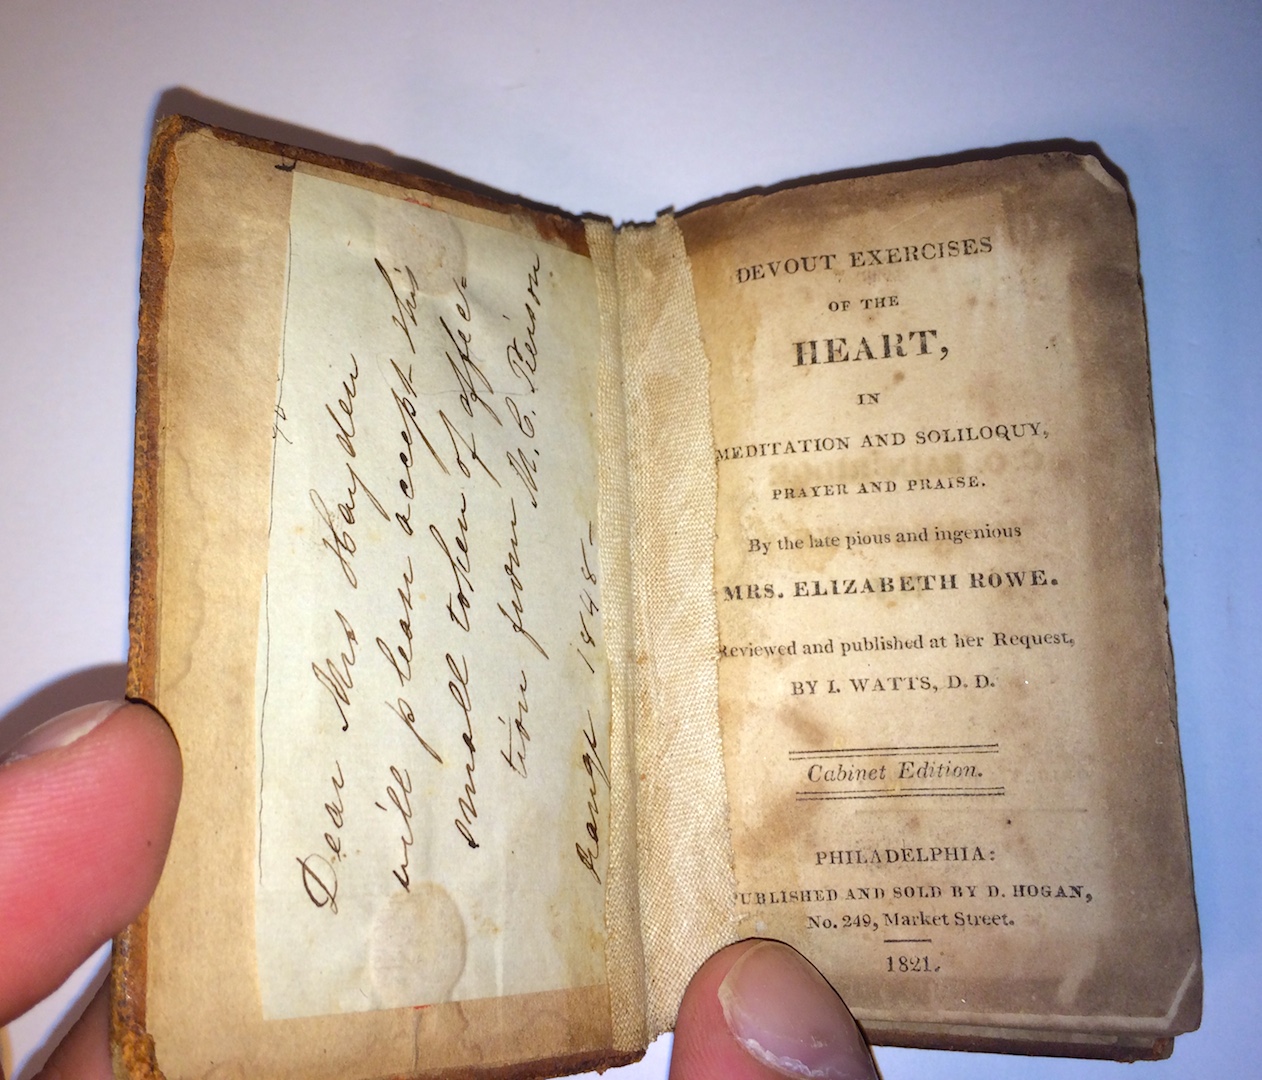 Dear Mrs Hayden
will please accept this
small token of affec-
tion from M. C. Peirson.
1848-
DEVOUT EXERCISES
OF THE
HEART,
IN
MEDITATION AND SOLILOQUY,
PRAYER AND PRAISE.
By the late pious and ingenious
MRS. ELIZABETH ROWE.
Reviewed and published at her Request,
BY I. WATTS, D. D.
Cabinet Edition.
PHILADELPHIA:
PUBLISHED AND SOLD BY D. HOGAN,
No. 249, Market Street.
1821.